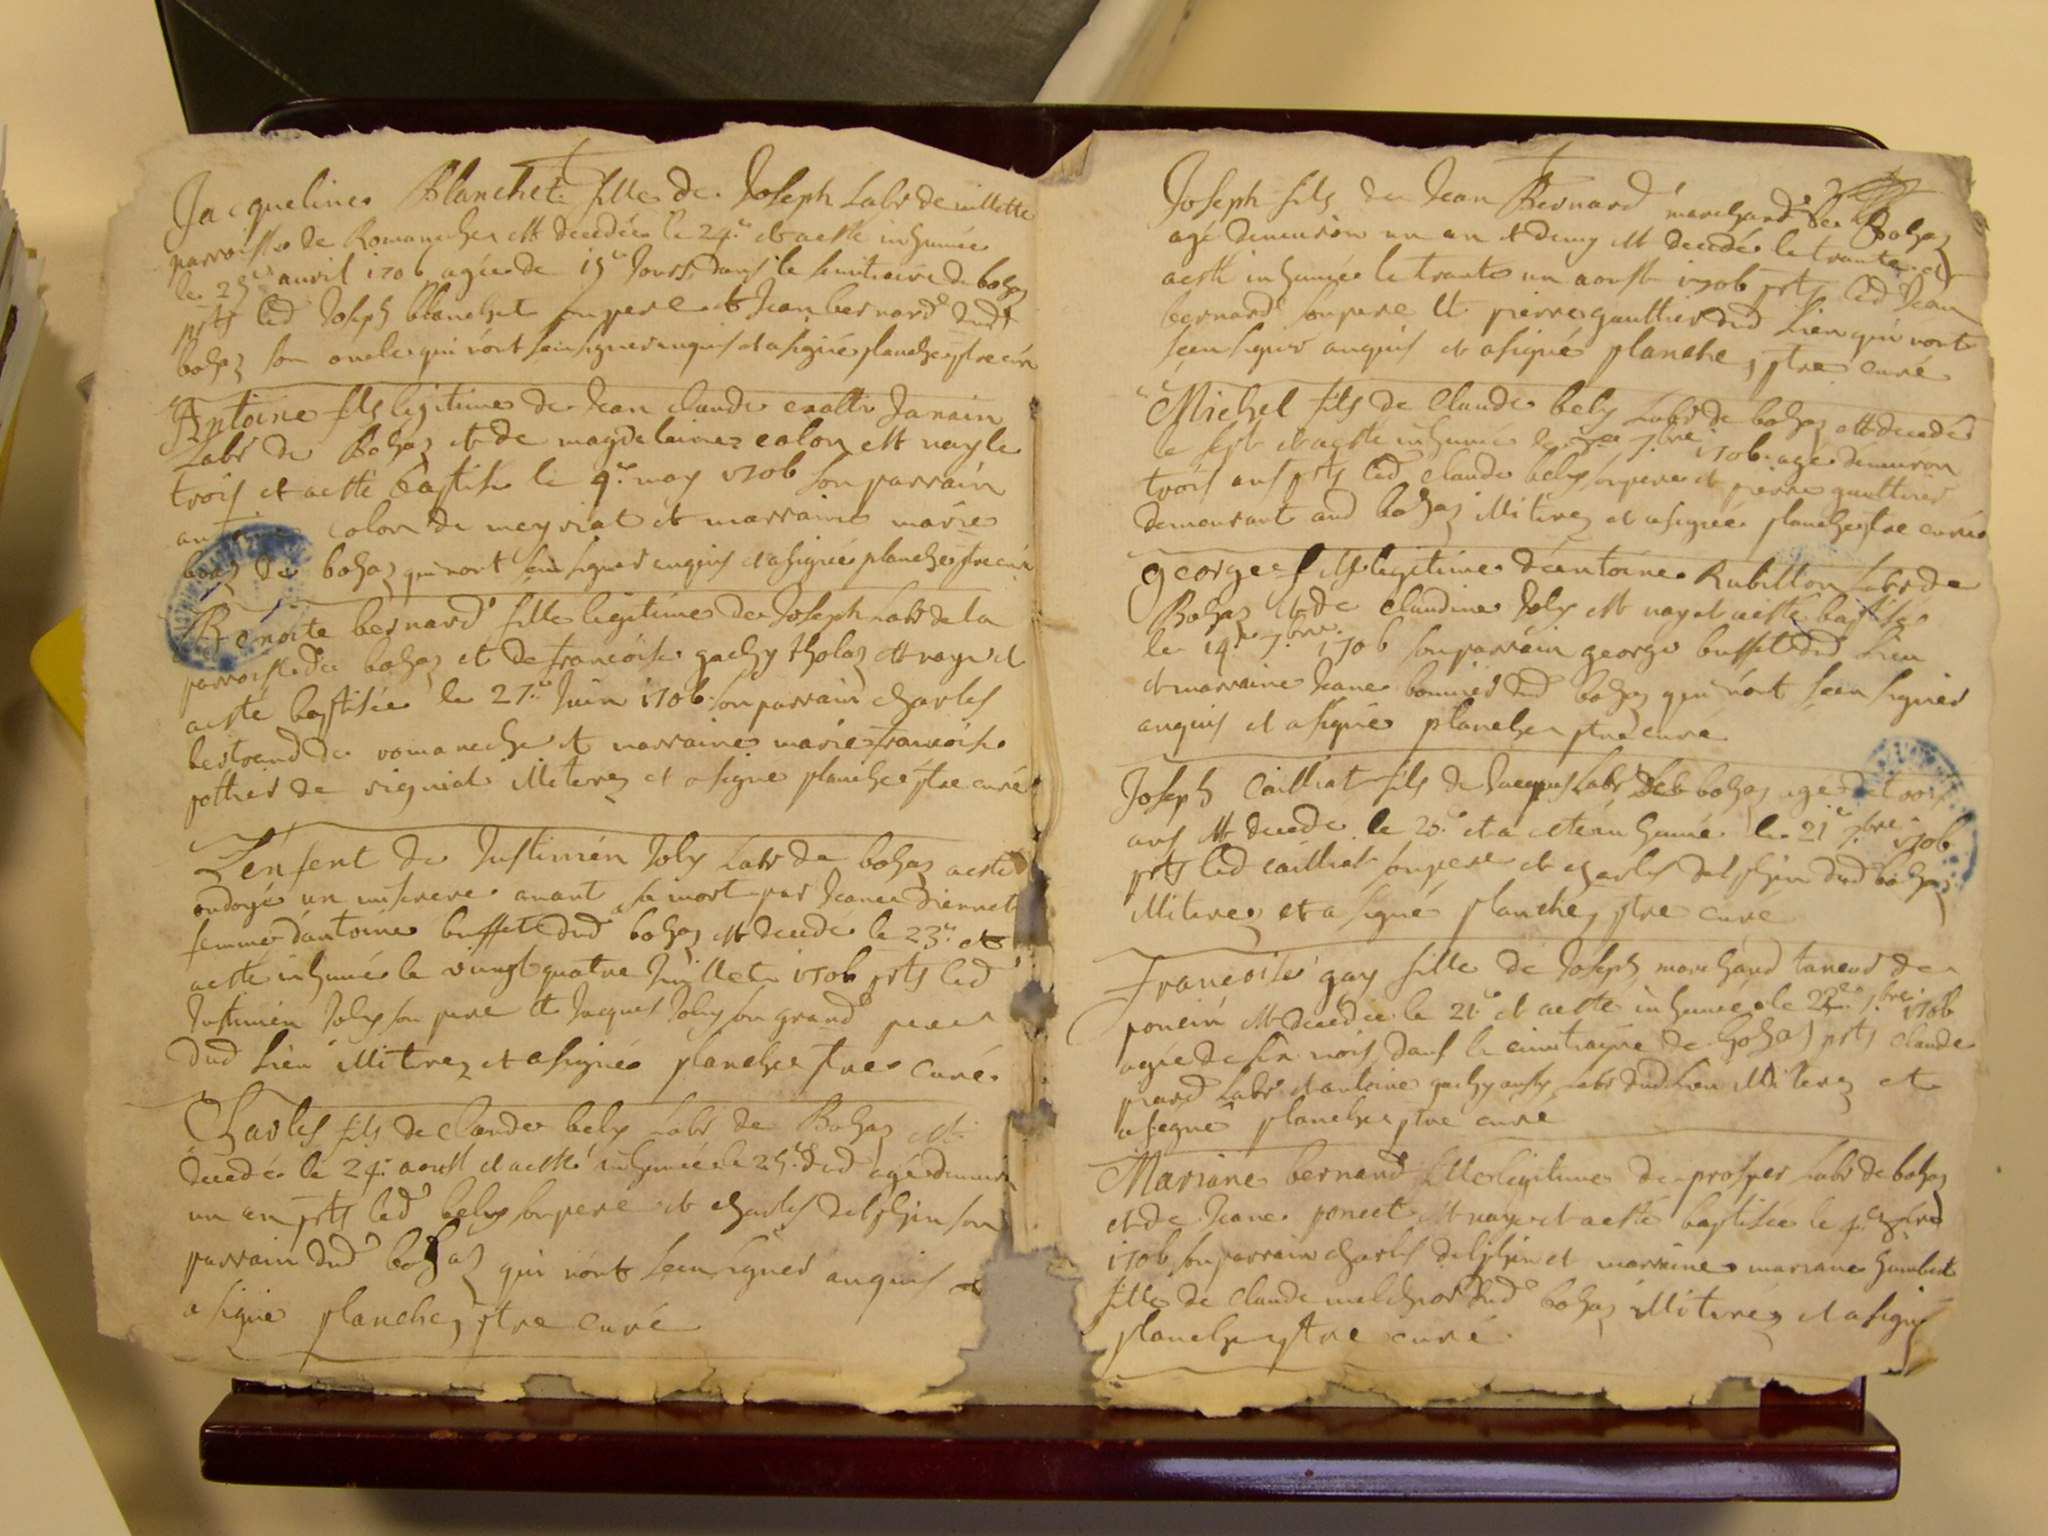 Jacqueline Blanchet fille de Joseph Labr de villette
parroisse de Romaneche est decedée le 24e et a esté inhumée
le 25e avril 1706 agée de 15e Jours dans le simitiaire de bohaz
pnts led Joseph blanchet son pere et Jean bernard dud
bohaz son oncle qui n'ont sceu signer enquis et a signé planche ptre curé
Antoine fils legitime de Jean claude Janain
Labr de Bohaz et de magdelaine colon est nay le
trois et a esté baptisé le 4e may 1706 son parrain
colon de meyriat et marraine marie
de bohaz qui n'ont sceu signer enquis et a signé planche ptre curé
Benoite bernard fille legitime de Joseph Labr de la
parroisse de bohaz et de francoise gachy tholaz est naye et
a esté baptisée le 27e Juin 1706 son parrain charles
bertrand de romaneche et marraine marie francoise
pothier de rignat illiterez et a signé planche ptre curé
L'enfent de Justinien Joly Labr de bohaz a esté
ondoyé un miserere avant sa mort par Jeane
femme d'antoine buffet dud bohaz est decedé le 23e et
a esté inhumé le vingt quatre Juillet 1706 pnts led
Justinien Joly son pere et Jacques Joly son grand pere
dud Lieu illiterez et a signé planche ptre curé
Charles fils de Claude bely Labr de Bohaz est
decedé le 24e aoust et a esté inhumé le 25e dud agé d'environ
un an pnts led bely son pere et charles delphin son
parrain dud bohaz qui n'ont sceu signer enquis et
a signé planche ptre curé
Joseph fils de Jean Bernard marchand de Bohaz
agé d'environ un an et demy est decedé le trante et
a esté inhumé le trante un aoust 1706 pnts led Jean
bernard son pere et pierre gaulthier dud Lieu qui n'ont
sceu signer enquis et a signé planche ptre curé
Michel fils de Claude bely Labr de bohaz est decedé
le sept et a esté inhumé le 7bre 1706 agé d'environ
trois ans pnts led Claude bely son pere et pierre gaulthier
demeurant aud bohaz illiterez et a signé planche ptre curé
George fils legitime d'antoine Rubillon Labr de
Bohaz et de claudine Joly est nay et a esté baptisé
le 14e 7bre 1706 son parrain george buffet dud Lieu
et marraine Jeane bonnier dud bohaz qui n'ont sceu signer
enquis et a signé planche ptre curé
Joseph Cailliat fils de Jacques Labr de bohaz agé de trois
ans est decedé le 20e et a esté inhumé le 21e 7bre 1706
pnts led cailliat son pere et charles delphin dud bohaz
illiterez et a signé planche ptre curé
Francoise gay fille de Joseph marchand taneur de
poncin est decedée le 21e et a esté inhumée le 22e 7bre 1706
agée de six mois dans le cimitiayre de bohaz pnts claude
Labr et antoine gachy aussy Labr dud Lieu illiterez et
a signé planche ptre curé
Mariane bernard fille legitime de prosper Labr de bohaz
et de Jeane poncet est naye et a esté baptisée le
1706 son parrain charles delphin et marraine mariane humbert
fille de claude melchior dud bohaz illiterez et a signé
planche ptre curé